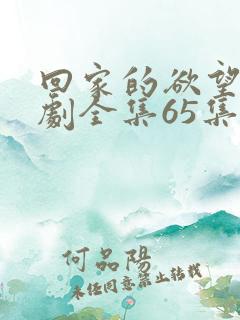 回家的欲望
劇全集65集
何品陽
未经同意禁止转载